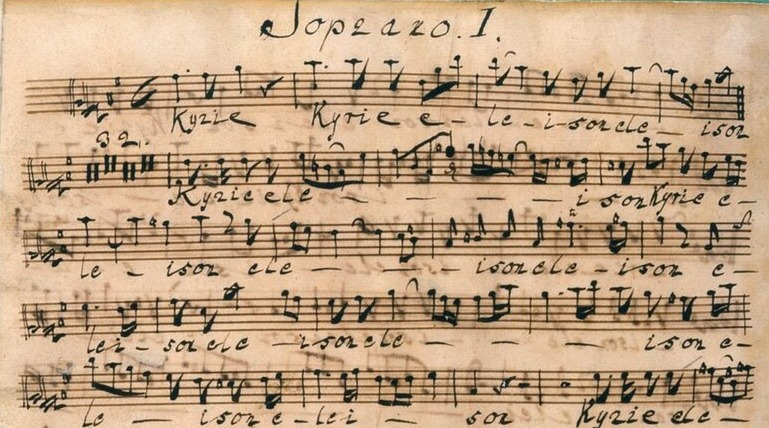 Soprano. I.
Kyrie Kyrie e - le - i - son ele - ison
32.
Kyrie ele - - - - i son Kyrie e -
le - ison ele - - - - ison ele - ison e -
lei - son ele - ison ele - - - - ison e -
le - ison e - lei - son Kyrie ele -